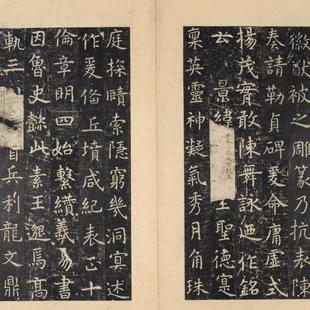 徽猷被之雕篆乃抗表陳
奏請勒貞碑爰命庸虛式
揚茂實敢陳舞詠迺作銘
云景緯 生聖德寔
稟英靈神凝氣秀月角珠
庭探賾索隱窮幾洞冥述
作爰俻丘墳咸紀表正十
倫章明四始繫纘羲易書
因魯史懿此素王邈焉高
軌三 首兵利龍文鼎